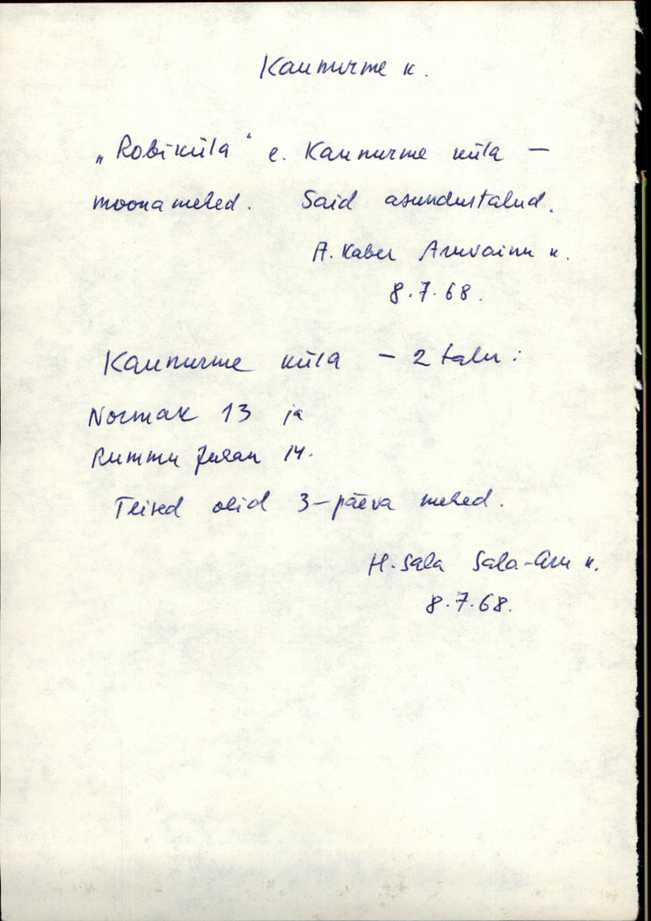 Kaunurme k.
„Robiküla" e. Kaunurme küla —
moonamehed. Said asundustalud.
A. Kaber Aruvainu k.
8.7.68.
Kaunurme küla – 2 talu:
Normak 13 ja
Rummu Juhan 14.
Teised olid 3-päeva mehed.
H. Sala Sala-Aru k.
8.7.68.